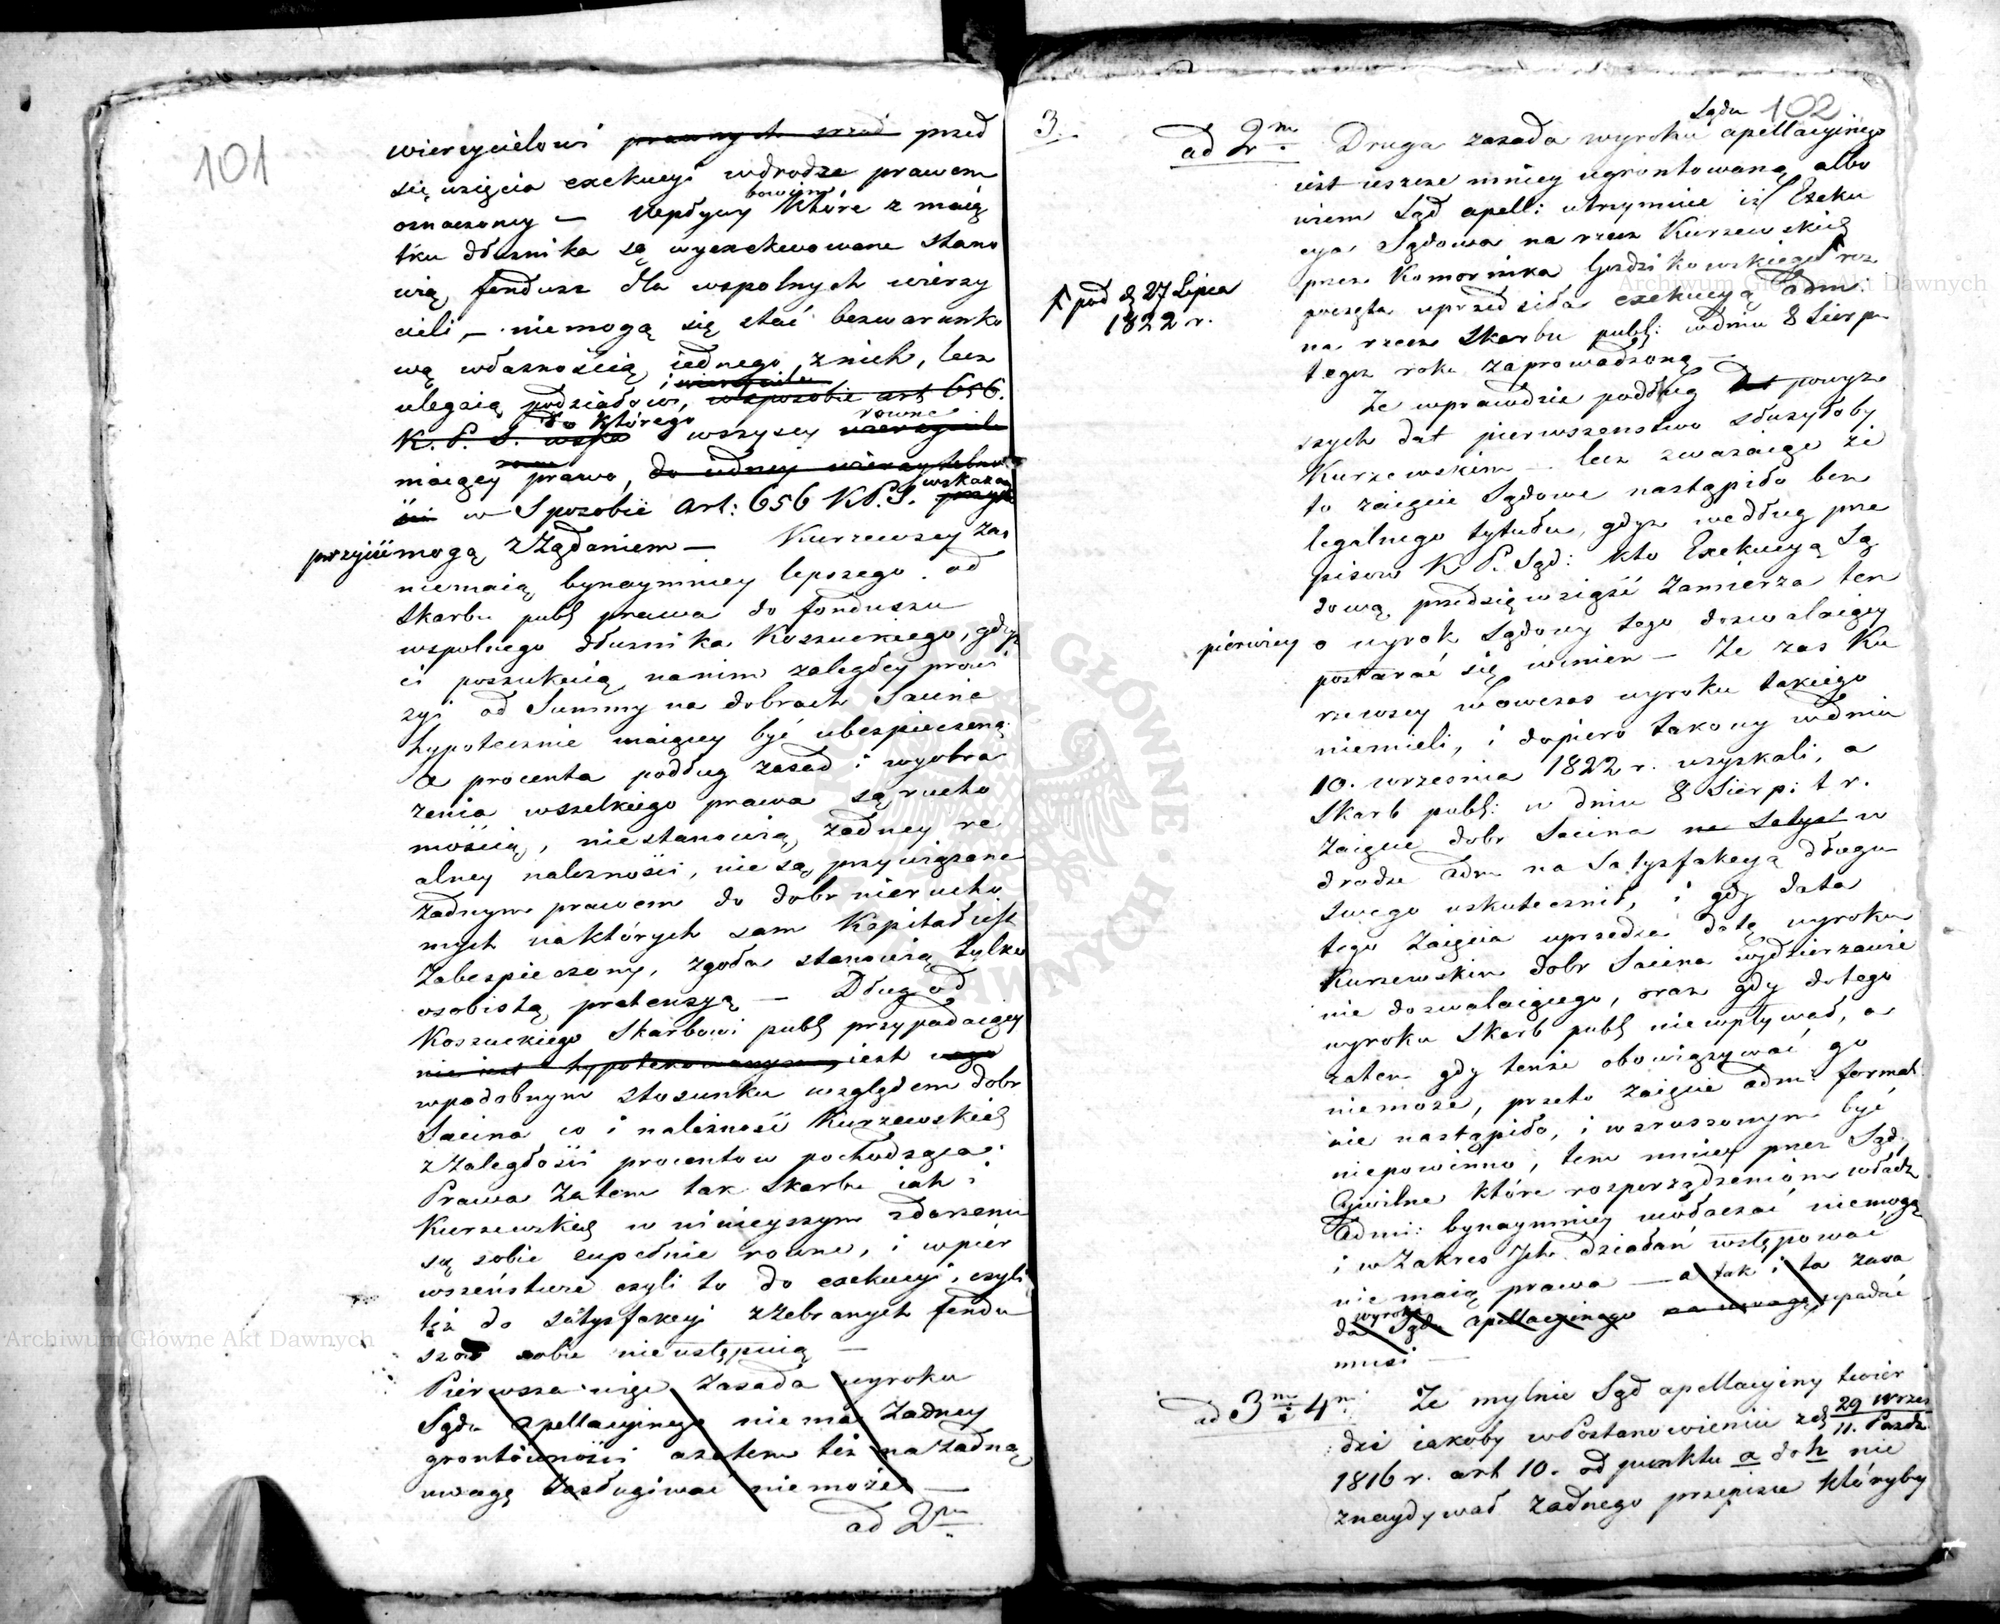 101
wierzycielowi prawnych srzod przed
się wzięcia exekucyi wdrodze prawem
oznaczoney — Wpływy bowiem które z maią
tku dłużnika są wyexekwowane stano
wią fundusz dla wspolnych wierzy
cieli, — niemogą się stać bezwarunko
wą własnością iednego z nich, lecz
ulegaią podziałowi, wsposobie art 656.
K. P. S. do którego wszyscy rowne
maiący prawo, do iedney
w Sposobie art: 656 K.P.S. wskazan
przyiść mogą z Żądaniem — Kurzewscy zas
niemaią bynaymniey lepszego od
Skarbu publ prawa do funduszu
wspolnego dłużnika Koszuckiego, gdyż
ci poszukuią na nim zaległey prowi
zyi od Summy na dobrach Sacine
hypotecznie maiącey być ubezpieczoną.
A procenta podług zasad i wyobra
żenia wszelkiego prawa są rucho
mością, niestanowią żadney re
alney należności, nie są przywiązane
żadnym prawem do dobr nierucho
mych na których sam Kapitał iest
Zabezpieczony, zgoła stanowią tylko
osobistą pretensyą — Dług od
Koszuckiego Skarbowi publ przypadaiący
nie iest hypotekowanym, iest
wpodobnym stosunku względem dobr
Sacina co i należność Kurzewskich
z Zaległości procentow pochodząca.
Prawa Zatem tak Skarbu iak i
Kurzewskich w ninieyszym zdarzeniu
są sobie zupełnie rowne, i wpier
wszeństwie czyli to do exekucyi, czyli
też do satysfakcyi z Zebranych fundu
szow sobie nie ustępuią —
Pierwsza więc Zasada wyroku
Sądu apellacyinego niema żadney
grontowności azatem też na żadną
uwagę Zasługiwać niemoże —
ad 2m
3.
102
ad 2m. Druga zasada wyroku Sądu apellacyinego
iest ieszcze mniey ugrontowaną albo
wiem Sąd apell: utrzymuie iż Exeku
cya Sądowa na rzecz Kurzewskich
przez Komornika Gozdzikowskiego roz
↑ pod d 27 Lipca
1822 r.
poczęta uprzedziła exekucyą adm:
na rzecz Skarbu publ: wdniu 8 Sierp.
tegoż roku zaprowadzoną —
Że wprawdzie podług powyż
szych dat pierwszenstwo służyłoby
Kurzewskim — lecz zważaiąc że
to zaięcie Sądowe nastąpiło bez
legalnego tytułu, gdyż według prze
pisow K. P. Sąd: kto Exekucyą Są
dową przedsięwziąść Zamierza ten
pierwiey o wyrok Sądowy tego dozwalaiący
postarać się winien — Że zas Ku
rzewscy wowczas wyroku takiego
niemieli, i dopiero takowy wdniu
10. września 1822 r. uzyskali, a
Skarb publ: w dniu 8 Sierp: t r.
Zaięcie dobr Sacina na Satysf w
drodze adm na Satysfakcyą długu
Swego uskutecznił, i gdy data
tego Zaięcia uprzedza datę wyroku
Kurzewskim dobr Sacina wydzierzawie
nie dozwalaiącego, oraz gdy do tego
wyroku Skarb publ niewpływał, a
zatem gdy tenże obowiązywać go
niemoże, przeto zaięcie adm: formal
nie nastąpiło, i wzruszonym być
niepowinno, tem mniey przez Sąd
Cywilne które rozporządzeniom władz
Admi: bynaymniey uwłaczać niemogą
i w Zakres Ich działań wstępować
nie maią prawa — a tak i ta zasa
da wyroku Sądu apellacyinego na uwagę upadać
musi —
ad 3m i 4m Że mylnie Sąd apellacyiny twier
dzi iakoby w Postanowieniu z d 29 Wrześ / 11. Pazdz
1816 r. art 10. od punktu a do h nie
znaydywał żadnego przepisu któryby
Archiwum Główne Akt Dawnych
Archiwum Główne Akt Dawnych